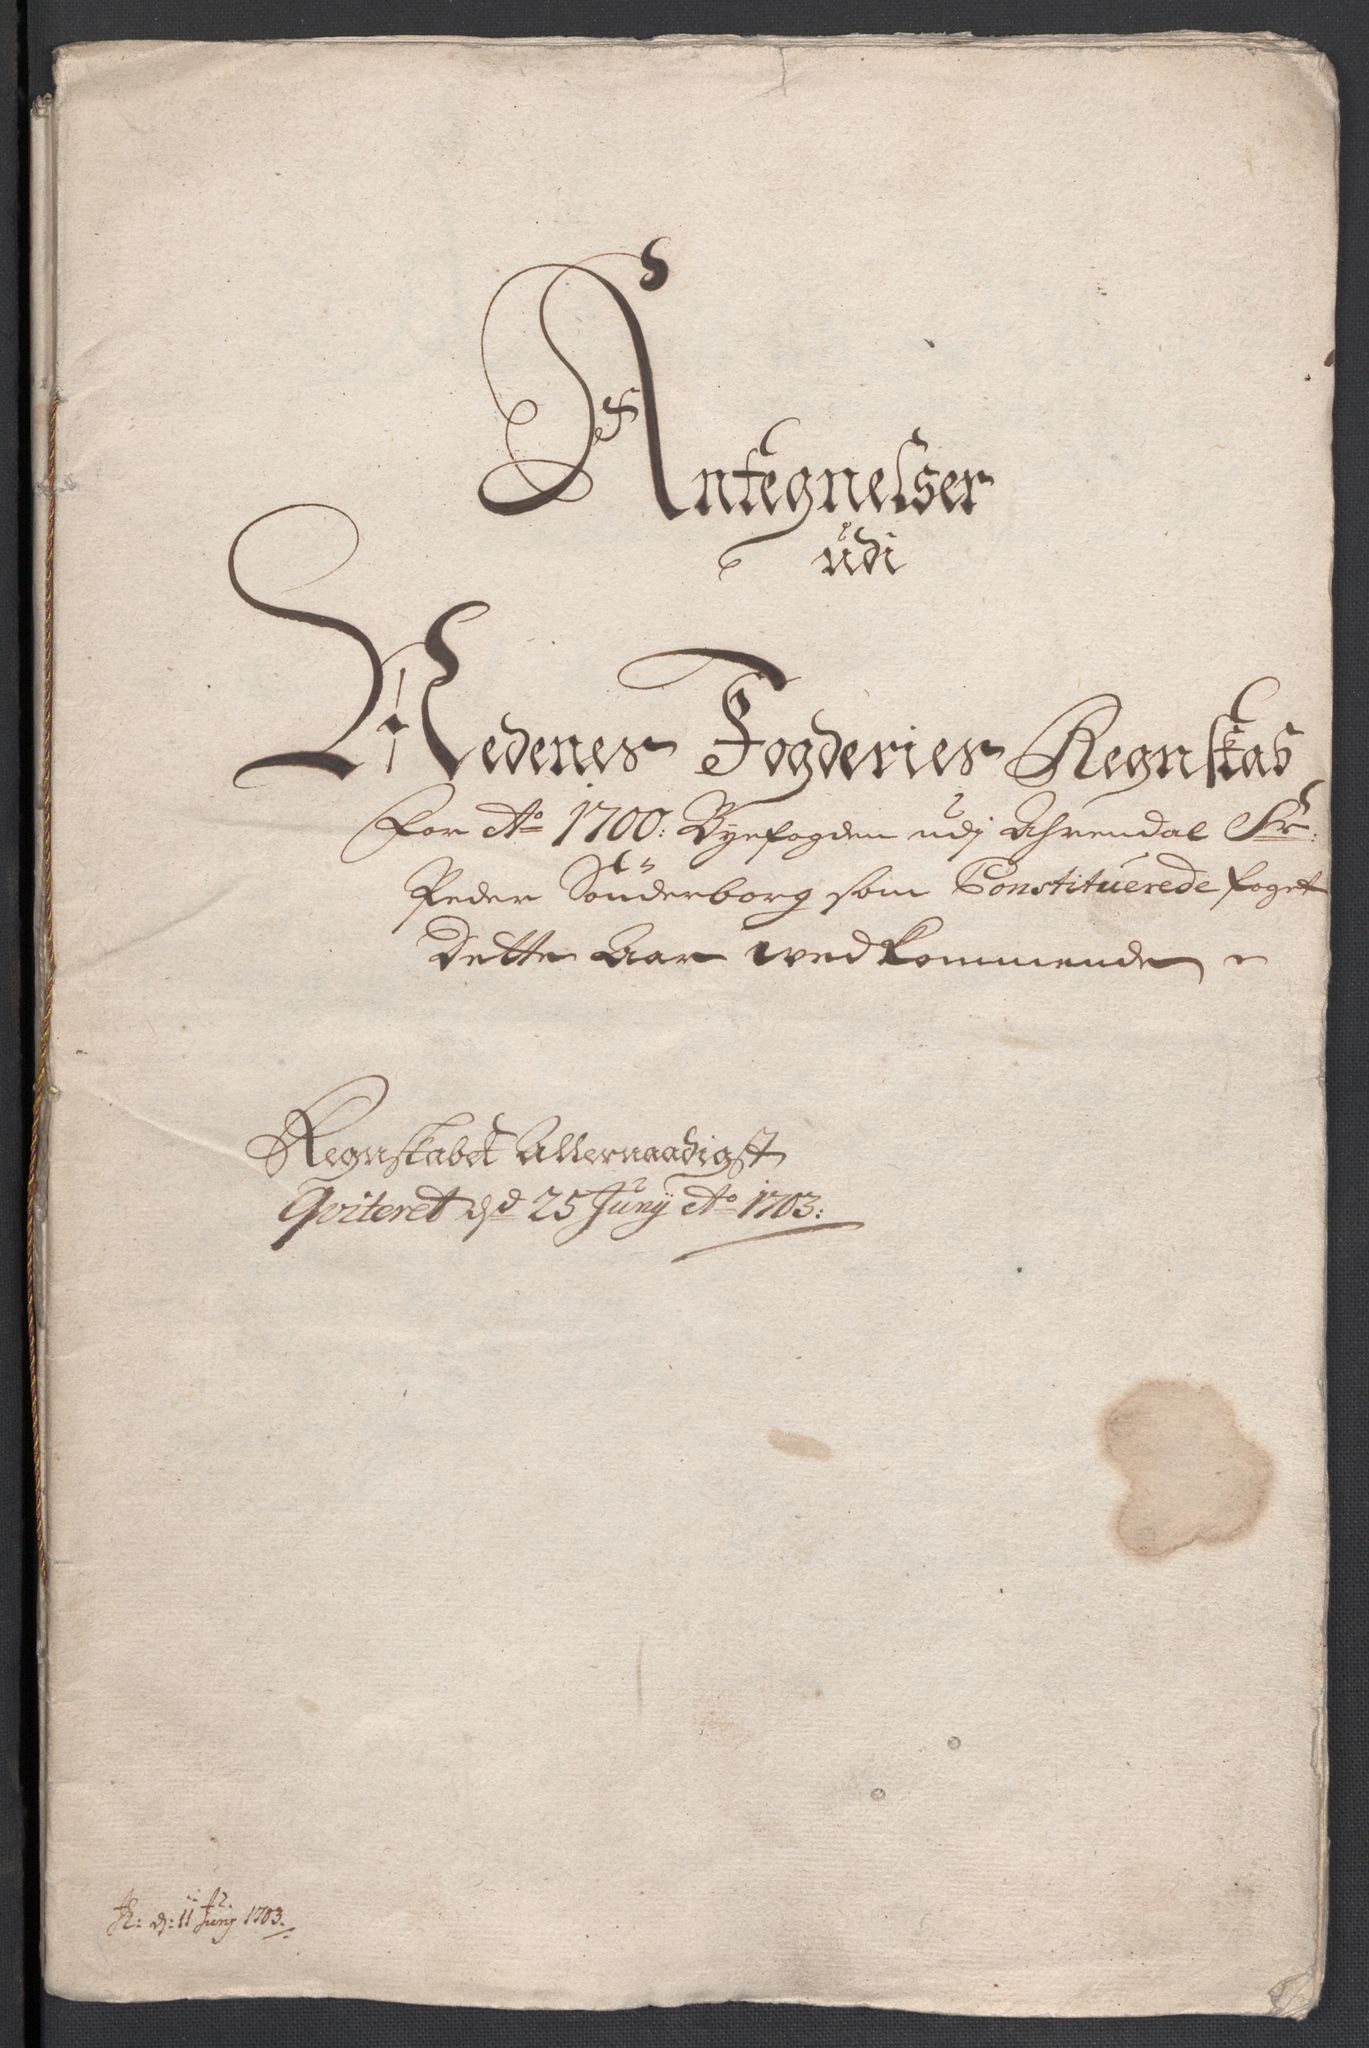 Antegnelser
udi
Nedenes Fogderies Regnskab
For Ao 1700: Byefogden udj Ahrendal Sr:
Peder Sönderborg som Constituerede foget
Dette Aar wedkommende
Regnskabet Allernaadigst
Qviteret d 25 Junÿ Ao 1703:
d: 11 Junÿ 1703.